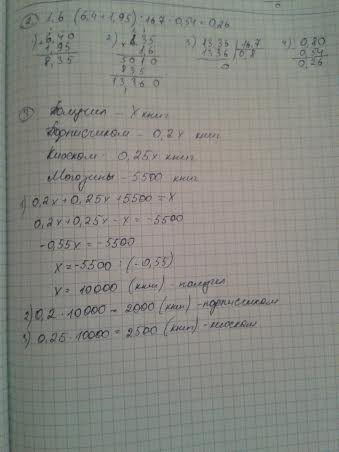 2) 1,6 · (6,4 + 1,95) : 16,7 - 0,54 = 0,26
1) 6,40 2) 8,35 3) 13,36 | 16,7 4) 0,80
1,95 1,6 13 36 | 0,8 0,54
8,35 5010 0 0,26
835
13,360
3) Получил - x книг
Подписчиком - 0,2x книг
Киоском - 0,25x книг
Могозины - 5500 книг
1) 0,2x + 0,25x + 5500 = x
0,2x + 0,25x - x = -5500
-0,55x = -5500
x = -5500 : (-0,55)
x = 10000 (книг) - получил
2) 0,2 · 10000 = 2000 (книг) - подписчиком
3) 0,25 · 10000 = 2500 (книг) - киоском